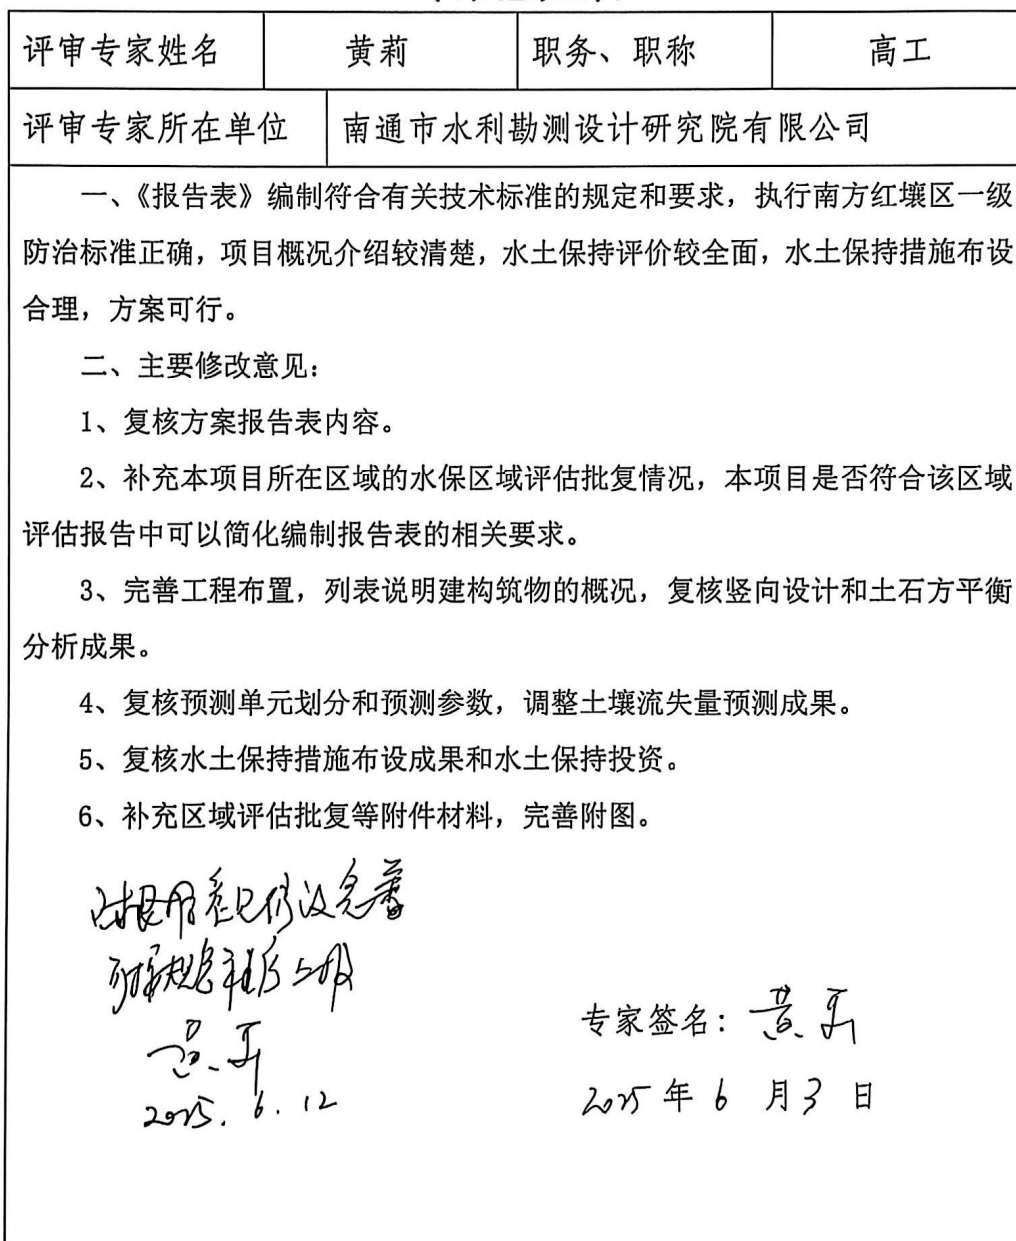 评审专家姓名 黄莉 职务、职称 高工
评审专家所在单位 南通市水利勘测设计研究院有限公司
一、《报告表》编制符合有关技术标准的规定和要求，执行南方红壤区一级
防治标准正确，项目概况介绍较清楚，水土保持评价较全面，水土保持措施布设
合理，方案可行。
二、主要修改意见：
1、复核方案报告表内容。
2、补充本项目所在区域的水保区域评估批复情况，本项目是否符合该区域
评估报告中可以简化编制报告表的相关要求。
3、完善工程布置，列表说明建构筑物的概况，复核竖向设计和土石方平衡
分析成果。
4、复核预测单元划分和预测参数，调整土壤流失量预测成果。
5、复核水土保持措施布设成果和水土保持投资。
6、补充区域评估批复等附件材料，完善附图。
意见修改完善
可按规定程序上报
黄莉
2025.6.12
专家签名：黄莉
2025年6月3日